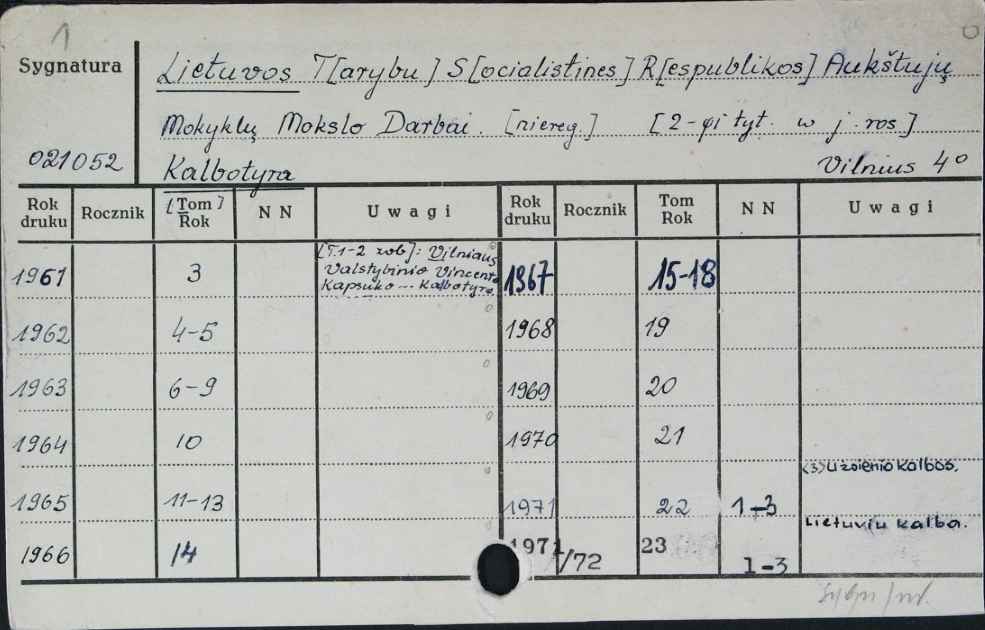 1
Sygnatura
Lietuvos T[arybu] S[ocialistines] R[espublikos] Aukštujų
Mokyklų Mokslo Darbai. [niereg.] [2-gi tyt. w j. ros]
021052 Kalbotyra Vilnius 4°
Rok druku Rocznik [Tom] Rok NN Uwagi Rok druku Rocznik Tom Rok NN Uwagi
1961 3 [T.1-2 zob]: Vilniaus Valstybinio Vincento Kapsuko --- Kalbotyra. 1967 15-18
1962 4-5 1968 19
1963 6-9 1969 20
1964 10 1970 21
(3) Užsienio kalbos.
1965 11-13 1971 22 1-3
Lietuviu kalba.
1966 14 1971/72 23 1-3